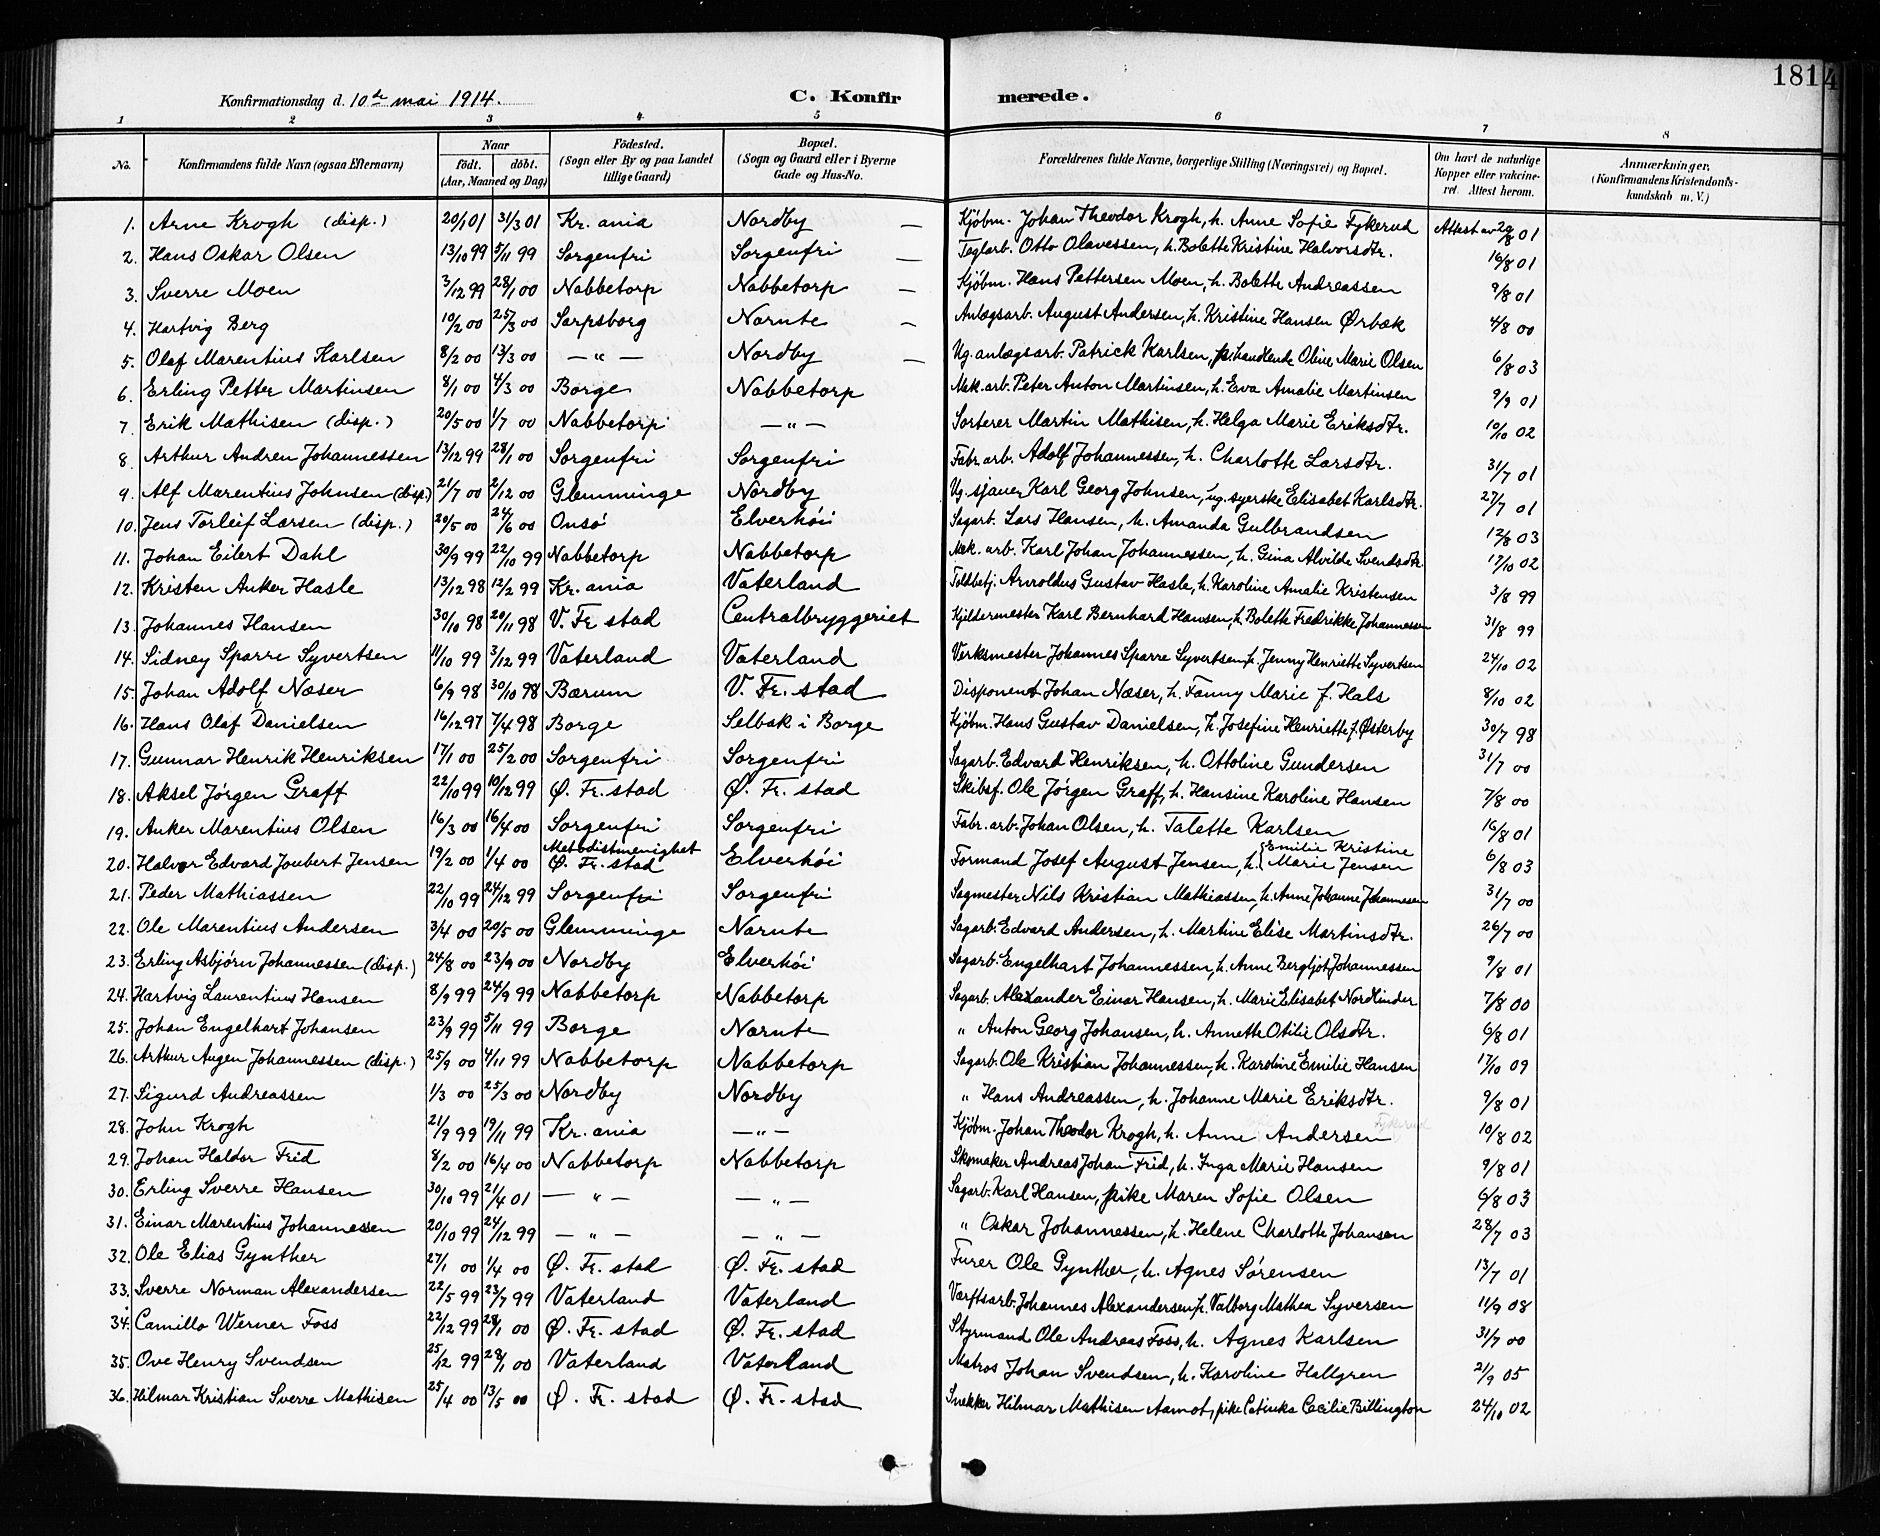 181 4
Konfirmationsdag d. 10de mai 1914. C. Konfirmerede.
1 2 3 4 5 6 7 8
No. Konfirmandens fulde Navn (ogsaa Efternavn) Naar födt. döbt. (Aar, Maaned og Dag) Födested. (Sogn eller By og paa Landet tillige Gaard) Bopæl. (Sogn og Gaard eller i Byerne Gade og Hus-No. Forældrenes fulde Navne, borgerlige Stilling (Næringsvei) og Bopæl. Om havt de naturlige Kopper eller vakcineret. Attest herom. Anmærkninger, (Konfirmandens Kristendomskundskab m. V.)
1. Arne Krogh (disp.) 20/1 01 31/3 01 Kr. ania Nordby — Kjøbm. Johan Theodor Krogh, h. Anne Sofie Fykerud Attest av 29/8 01
2. Hans Oskar Olsen 13/10 99 5/11 99 Sorgenfri Sorgenfri — Teglarb. Otto Olavessen, h. Bolette Kristine Halvorsdtr. 16/8 01
3. Sverre Moen 3/12 99 28/1 00 Nabbetorp Nabbetorp — Kjøbm. Hans Pettersen Moen, h. Bolette Andreassen 9/8 01
4. Hartvig Berg 10/2 00 25/3 00 Sarpsborg Narnte — Anlægsarb. August Andersen, h. Kristine Hansen Ørbæk 4/8 00
5. Olaf Marentius Karlsen 8/2 00 13/3 00 — " — Nordby — Ug. anlægsarb. Patrick Karlsen, pi. handlende Oline Marie Olsen 6/8 03
6. Erling Petter Martinsen 8/1 00 4/3 00 Borge Nabbetorp Mek. arb. Peter Anton Martinsen, h. Eva Amalie Martinsen 9/9 01
7. Erik Mathisen (disp.) 20/5 00 1/7 00 Nabbetorp — " — Sorterer Martin Mathisen, h. Helga Marie Eriksdtr. 10/10 02
8. Arthur Andren Johannessen 13/12 99 28/1 00 Sorgenfri Sorgenfri Fabr. arb. Adolf Johannessen, h. Charlotte Larsdtr. 31/7 01
9. Alf Marentius Johnsen (disp.) 21/7 00 2/12 00 Glemminge Nordby Ug. sjauer Karl Georg Johnsen, ug. syerske Elisabet Karlsdtr. 27/7 01
10. Jens Torleif Larsen (disp.) 20/5 00 24/6 00 Onsö Elverhöi Sagarb. Lars Hansen, h. Amanda Gulbrandsen 12/8 03
11. Johan Eilert Dahl 30/9 99 22/10 99 Nabbetorp Nabbetorp Mek. arb. Karl Johan Johannessen, h. Gina Alvilde Svendsdtr. 17/10 02
12. Kristen Anker Hasle 13/12 98 12/2 99 Kr. ania Vaterland Toldbetj. Arnoldus Gustav Hasle, h. Karoline Amalie Kristensen 3/8 99
13. Johannes Hansen 30/10 98 20/11 98 V. Fr stad Centralbryggeriet Kjeldermester Karl Bernhard Hansen, h. Bolette Fredrikke Johannessen 31/8 99
14. Sidney Sparre Syvertsen 11/10 99 3/12 99 Vaterland Vaterland Verksmester Johannes Sparre Syvertsen, h. Jenny Henriette Syvertsen 24/10 02
15. Johan Adolf Næser 6/9 98 30/10 98 Bærum V. Fr. stad Disponent Johan Næser, h. Fanny Marie f. Hals 8/10 02
16. Hans Olaf Danielsen 16/12 97 7/4 98 Borge Selbak i Borge Kjøbm. Hans Gustav Danielsen, h. Josefine Henriette f. Østerby 30/7 98
17. Gunnar Henrik Henriksen 17/1 00 25/2 00 Sorgenfri Sorgenfri Sagarb. Edvard Henriksen, h. Ottoline Gundersen 31/7 00
18. Aksel Jörgen Graff 22/10 99 10/12 99 Ø. Fr. stad Ø. Fr. stad Skibsf. Ole Jörgen Graff, h. Hansine Karoline Hansen 7/8 00
19. Anker Marentius Olsen 16/3 00 16/4 00 Sorgenfri Sorgenfri Fabr. arb. Johan Olsen, h. Talette Karlsen 16/8 01
20. Halvor Edvard Joubert Jensen 19/2 00 1/4 00 Metodistmenighet Ø. Fr. stad Elverhöi Formand Josef August Jensen, h. Emilie Kristine Marie Jensen 6/8 03
21. Peder Mathiassen 22/10 99 24/12 99 Sorgenfri Sorgenfri Sagmester Nils Kristian Mathiassen, h. Anne Johanne Johannesen 31/7 00
22. Ole Marentius Andersen 3/4 00 20/5 00 Glemminge Narnte Sagarb. Edvard Andersen, h. Martine Elise Martinsdtr. 26/7 00
23. Erling Asbjörn Johannessen (disp.) 24/8 00 23/9 00 Nordby Elverhöi Sagarb. Engelhart Johannessen, h. Anne Bergljot Johannessen 9/8 01
24. Hartvig Laurentius Hansen 8/9 99 24/9 99 Nabbetorp Nabbetorp Sagarb. Alexander Einar Hansen, h. Marie Elisabet Nordlinder 7/8 00
25. Johan Engelhart Johansen 23/9 99 5/11 99 Borge Narnte " Anton Georg Johansen, h. Annette Otilie Olsdtr. 6/8 01
26. Arthur Augen Johannessen (disp.) 25/9 00 4/11 99 Nabbetorp Nabbetorp Sagarb. Ole Kristian Johannessen, h. Karoline Emilie Hansen 17/10 09
27. Sigurd Andreassen 1/3 00 25/3 00 Nordby Nordby " Hans Andreassen, h. Johanne Marie Eriksdtr. 9/8 01
28. John Krogh 21/9 99 19/11 99 Kr. ania — " — Kjøbm. Johan Theodor Krogh, h. Anne Andersen Fykerud 10/8 02
29. Johan Haldor Frid 8/2 00 16/4 00 Nabbetorp Nabbetorp Skomaker Andreas Johan Frid, h. Inga Marie Hansen 9/8 01
30. Erling Sverre Hansen 30/10 99 21/4 01 — " — — " — Sagarb. Karl Hansen, pike Maren Sofie Olsen 6/8 03
31. Einar Marentius Johannessen 20/10 99 24/12 99 — " — — " — " Oskar Johannessen, h. Helene Charlotte Johansen 28/7 03
32. Ole Elias Gynther 27/1 00 1/4 00 Ø. Fr. stad Ø. Fr. stad Furer Ole Gynther, h. Agnes Sørensen 13/7 01
33. Sverre Norman Alexandersen 22/5 99 23/7 99 Vaterland Vaterland Værftsarb. Johannes Alexandersen, h. Valborg Mathea Syversen 11/9 08
34. Camillo Werner Foss 22/12 99 28/1 00 Ø. Fr. stad Ø. Fr. stad Styrmand Ole Andreas Foss, h. Agnes Karlsen 31/7 00
35. Ove Henry Svendsen 25/12 99 28/1 00 Vaterland Vaterland Matros Johan Svendsen, h. Karoline Hallgren 2/9 05
36. Hilmar Kristian Sverre Mathisen 25/4 00 13/5 00 Ø. Fr. stad Ø. Fr. stad Snekker Hilmar Mathisen Aamot, pike Catinka Cecilie Billington 24/10 02